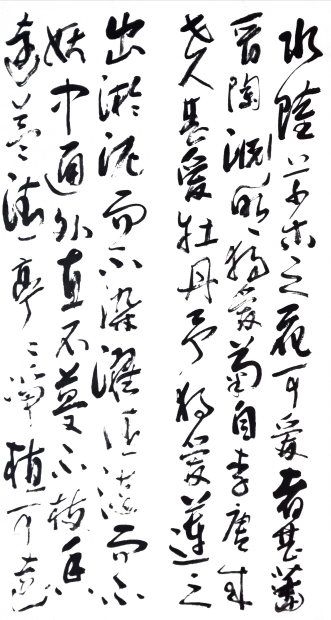 水陸草木之花可愛者甚蕃
晋陶淵明獨愛菊自李唐来
世人甚愛牡丹予獨愛蓮之
出淤泥而不染濯清漣而不
妖中通外直不蔓不枝香
遠益清亭々净植可遠